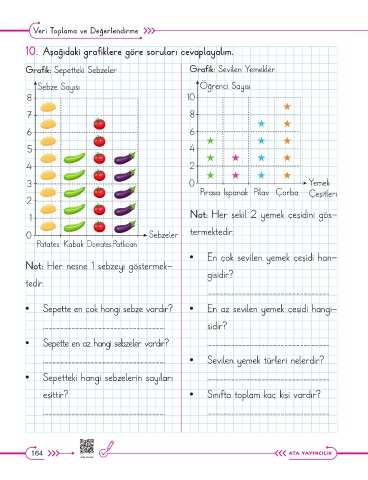 Veri Toplama ve Değerlendirme
10. Aşağıdaki grafiklere göre soruları cevaplayalım.
Grafik: Sepetteki Sebzeler
Sebze Sayısı
8
7
6
5
4
3
2
1
0
Sebzeler
Patates Kabak Domates Patlıcan
Not: Her nesne 1 sebzeyi göstermek-
tedir.
• Sepette en çok hangi sebze vardır?
• Sepette en az hangi sebzeler vardır?
• Sepetteki hangi sebzelerin sayıları
eşittir?
Grafik: Sevilen Yemekler
Öğrenci Sayısı
10
8
6
4
2
0
Yemek
Çeşitleri
Pırasa Ispanak Pilav Çorba
Not: Her şekil 2 yemek çeşidini gös-
termektedir.
• En çok sevilen yemek çeşidi han-
gisidir?
• En az sevilen yemek çeşidi hangi-
sidir?
• Sevilen yemek türleri nelerdir?
• Sınıfta toplam kaç kişi vardır?
164
ATA YAYINCILIK